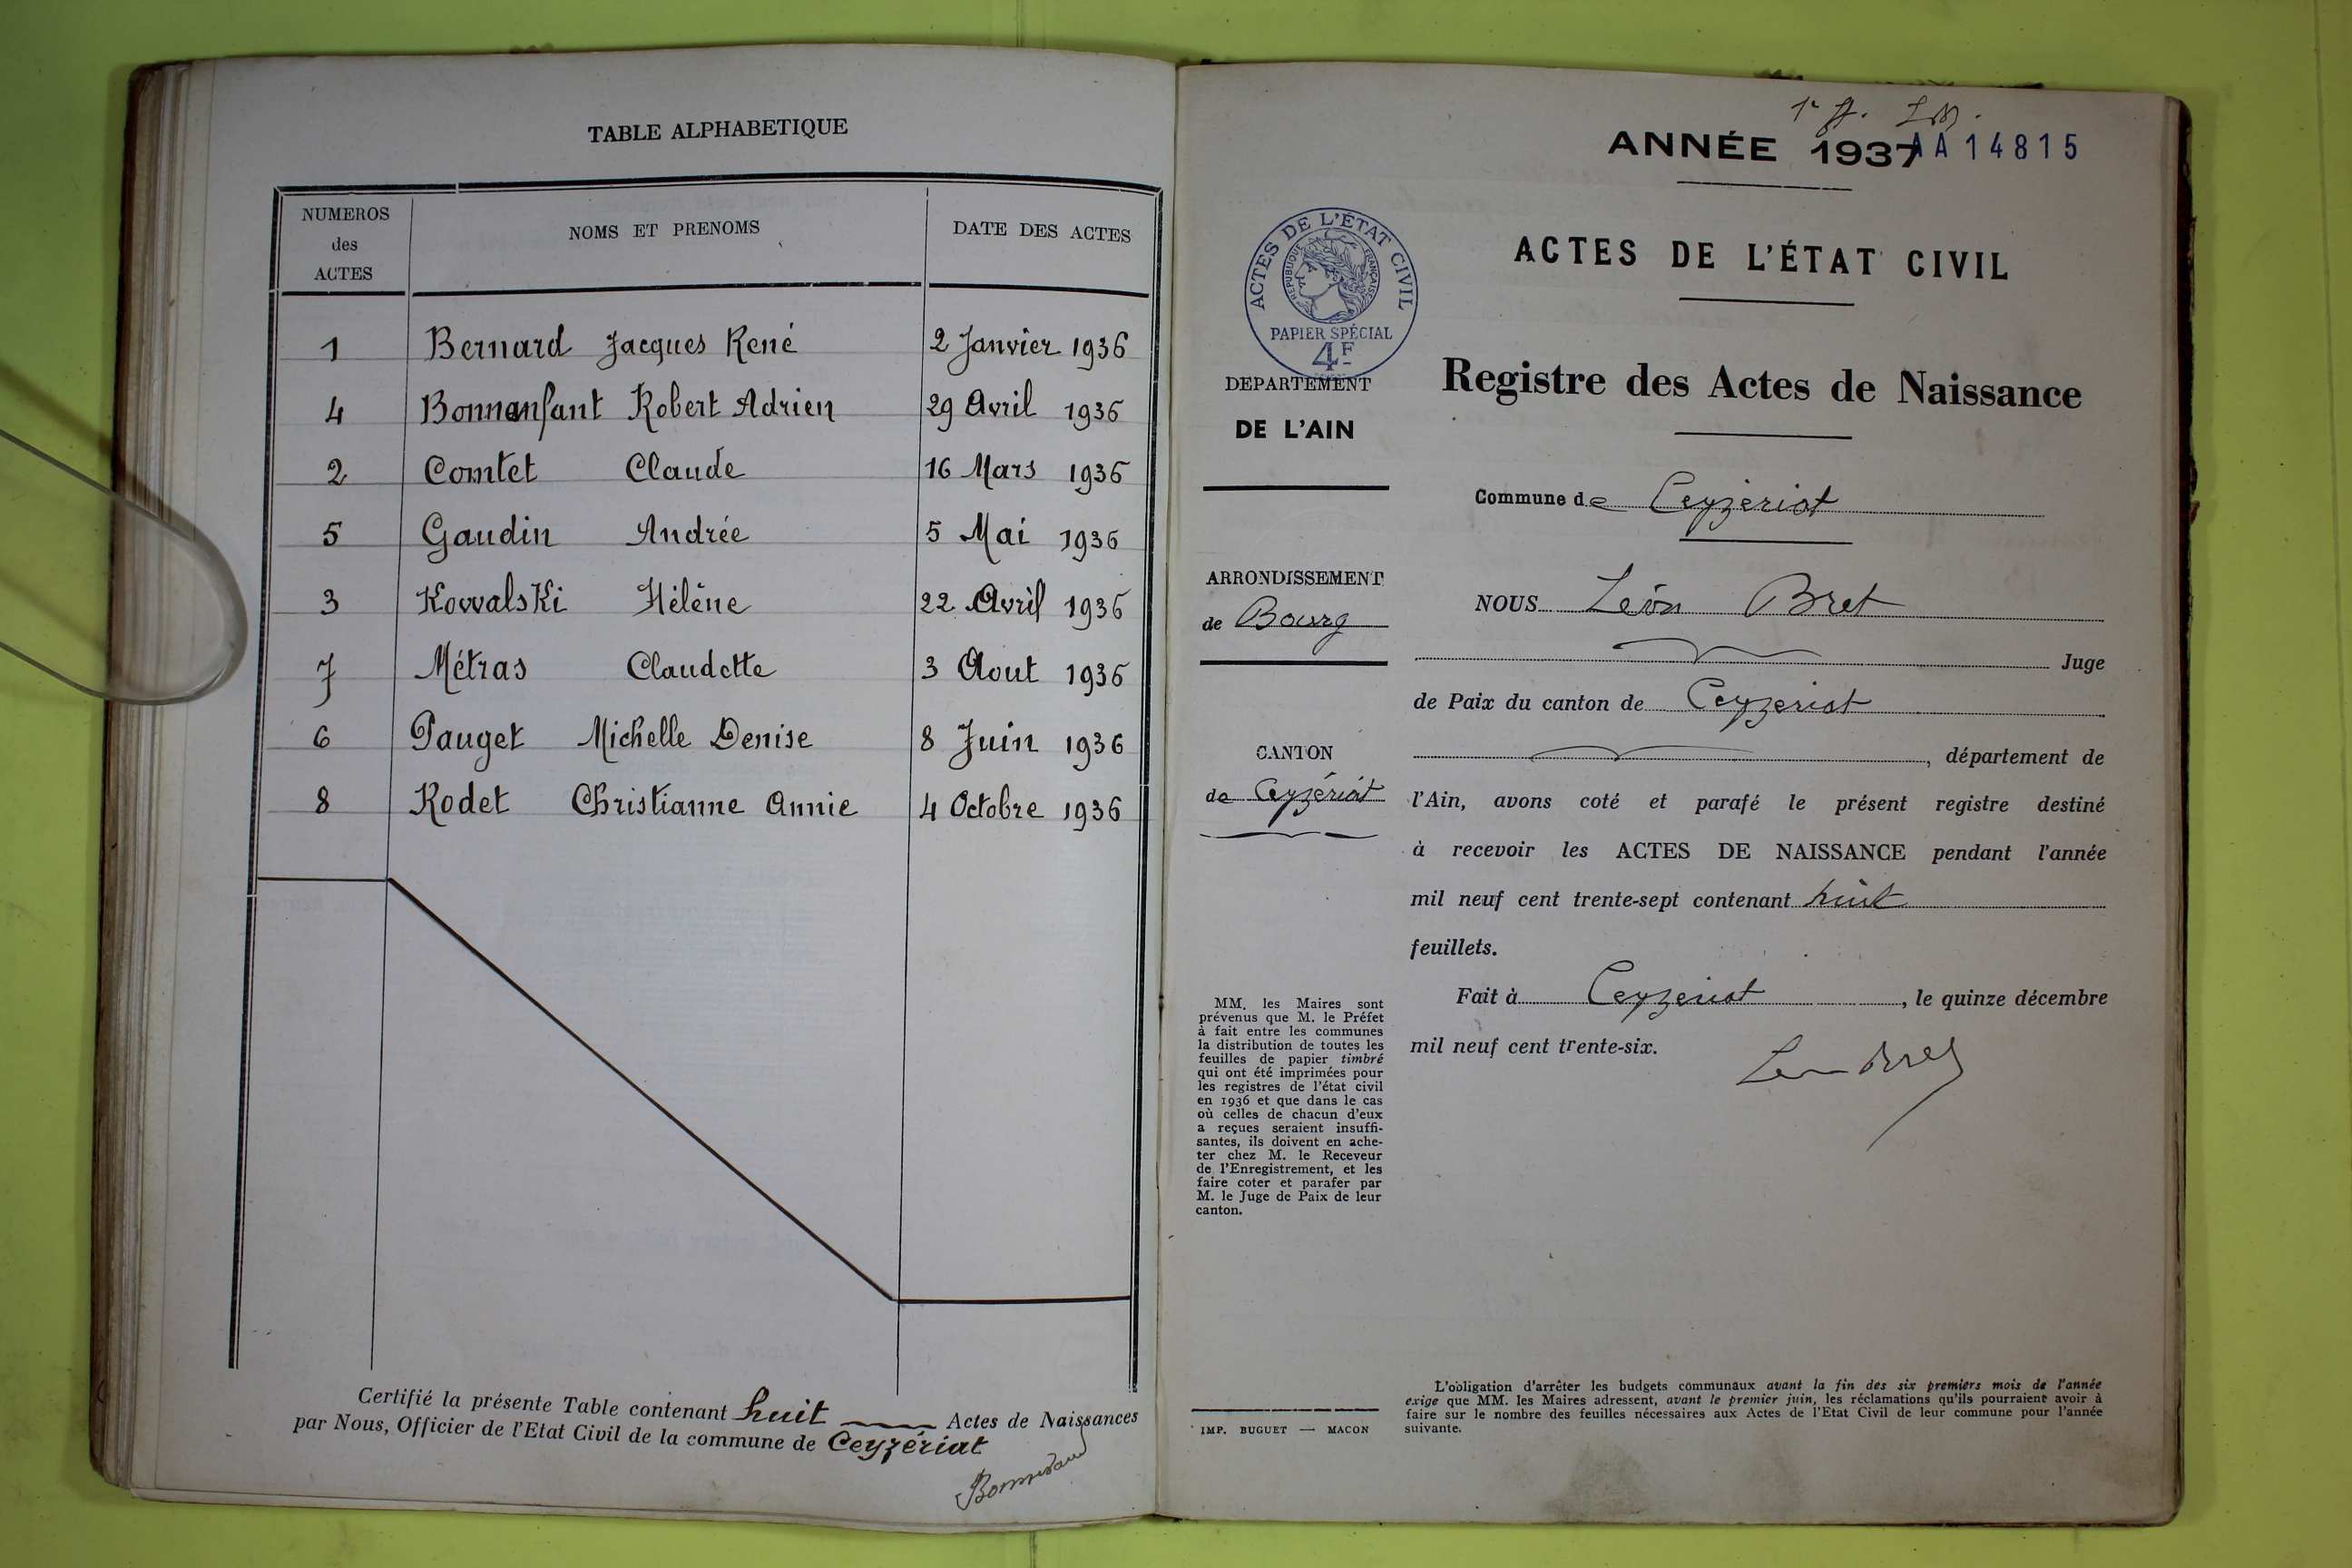 TABLE ALPHABETIQUE
NUMEROS des ACTES NOMS ET PRENOMS DATE DES ACTES
1 Bernard Jacques René 2 Janvier 1936
4 Bonnenfant Robert Adrien 29 Avril 1936
2 Comtet Claude 16 Mars 1936
5 Gaudin Andrée 5 Mai 1936
3 Kowalski Hélène 22 Avril 1936
7 Métras Claudette 3 Aout 1936
6 Pauget Michelle Denise 8 Juin 1936
8 Rodet Christianne Annie 4 Octobre 1936
Certifié la présente Table contenant huit Actes de Naissances
par Nous, Officier de l'Etat Civil de la commune de Ceyzériat
ANNÉE 1937 AA14815
ACTES DE L'ÉTAT CIVIL
RÉPUBLIQUE FRANÇAISE
PAPIER SPÉCIAL
4F
DEPARTEMENT
DE L'AIN
ARRONDISSEMENT
de Bourg
CANTON
de Ceyzériat
MM. les Maires sont
prévenus que M. le Préfet
à fait entre les communes
la distribution de toutes les
feuilles de papier timbré
qui ont été imprimées pour
les registres de l'état civil
en 1936 et que dans le cas
où celles de chacun d'eux
a reçues seraient insuffi-
santes, ils doivent en ache-
ter chez M. le Receveur
de l'Enregistrement, et les
faire coter et parafer par
M. le Juge de Paix de leur
canton.
IMP. BUGUET — MACON
ACTES DE L'ÉTAT CIVIL
Registre des Actes de Naissance
Commune de Ceyzériat
NOUS Léon Bret
Juge
de Paix du canton de Ceyzeriat
, département de
l'Ain, avons coté et parafé le présent registre destiné
à recevoir les ACTES DE NAISSANCE pendant l'année
mil neuf cent trente-sept contenant huit
feuillets.
Fait à Ceyzeriat, le quinze décembre
mil neuf cent trente-six.
Leon Bret
L'obligation d'arrêter les budgets communaux avant la fin des six premiers mois de l'année
exige que MM. les Maires adressent, avant le premier juin, les réclamations qu'ils pourraient avoir à
faire sur le nombre des feuilles nécessaires aux Actes de l'Etat Civil de leur commune pour l'année
suivante.